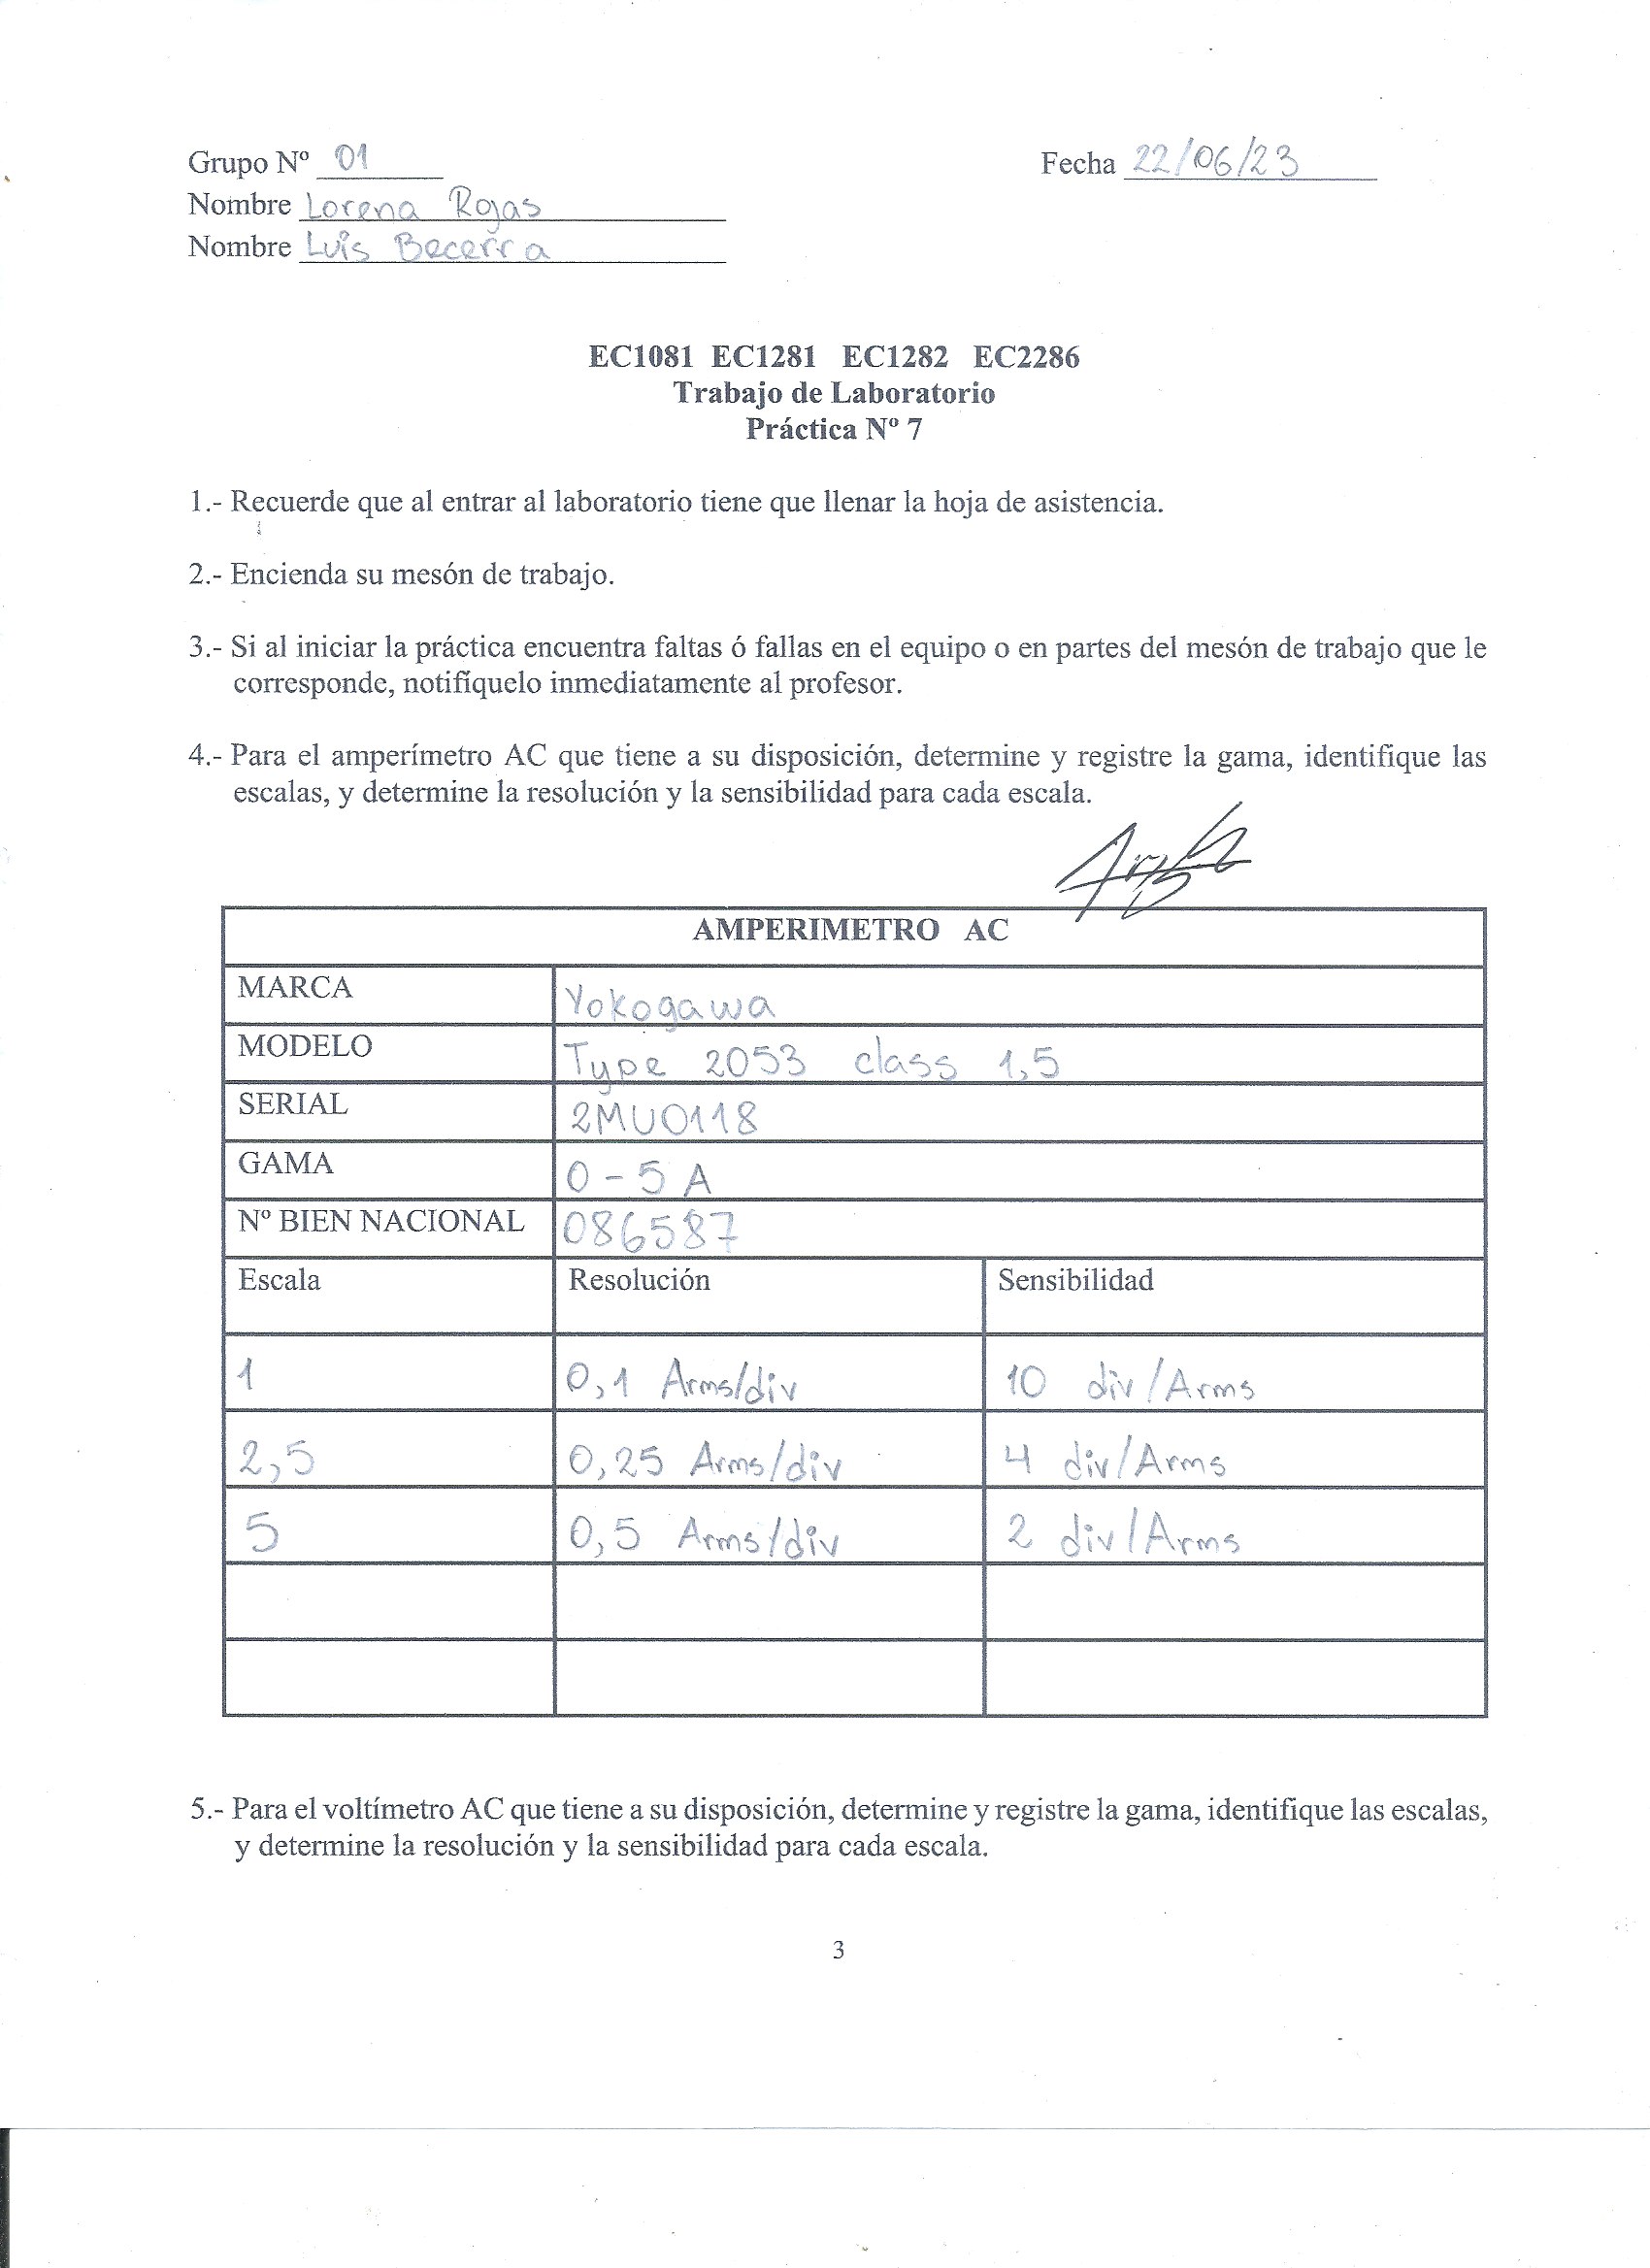 Grupo Nº 01
Fecha 22/06/23
Nombre Lorena Rojas
Nombre Luis Becerra
EC1081 EC1281 EC1282 EC2286
Trabajo de Laboratorio
Práctica Nº 7
1.- Recuerde que al entrar al laboratorio tiene que llenar la hoja de asistencia.
2.- Encienda su mesón de trabajo.
3.- Si al iniciar la práctica encuentra faltas ó fallas en el equipo o en partes del mesón de trabajo que le
corresponde, notifíquelo inmediatamente al profesor.
4.- Para el amperímetro AC que tiene a su disposición, determine y registre la gama, identifique las
escalas, y determine la resolución y la sensibilidad para cada escala.
AMPERIMETRO AC
MARCA Yokogawa
MODELO Type 2053 class 1,5
SERIAL 2MU0118
GAMA 0 - 5 A
Nº BIEN NACIONAL 086587
Escala Resolución Sensibilidad
1 0,1 Arms/div 10 div/Arms
2,5 0,25 Arms/div 4 div/Arms
5 0,5 Arms/div 2 div/Arms
5.- Para el voltímetro AC que tiene a su disposición, determine y registre la gama, identifique las escalas,
y determine la resolución y la sensibilidad para cada escala.
3